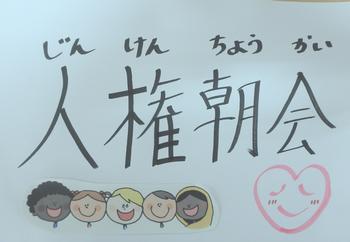 じん けん ちょう かい
人権朝会